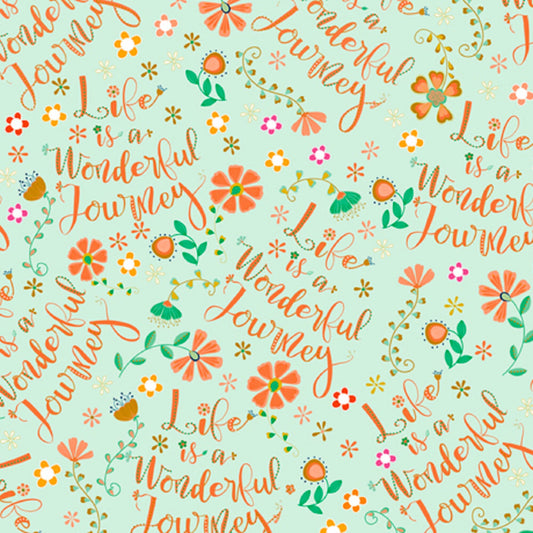 is a
Wonderful
Journey
Life
is a
Wonderful
Journey
Wonderful
Journey
Life
is a
Wonderful
Journey
Life
is a
Wonderful
Journey
is a
Wonderful
Journey
Life
is a
Wonderful
Journey
Life
is a
Wonderful
Journey
Life